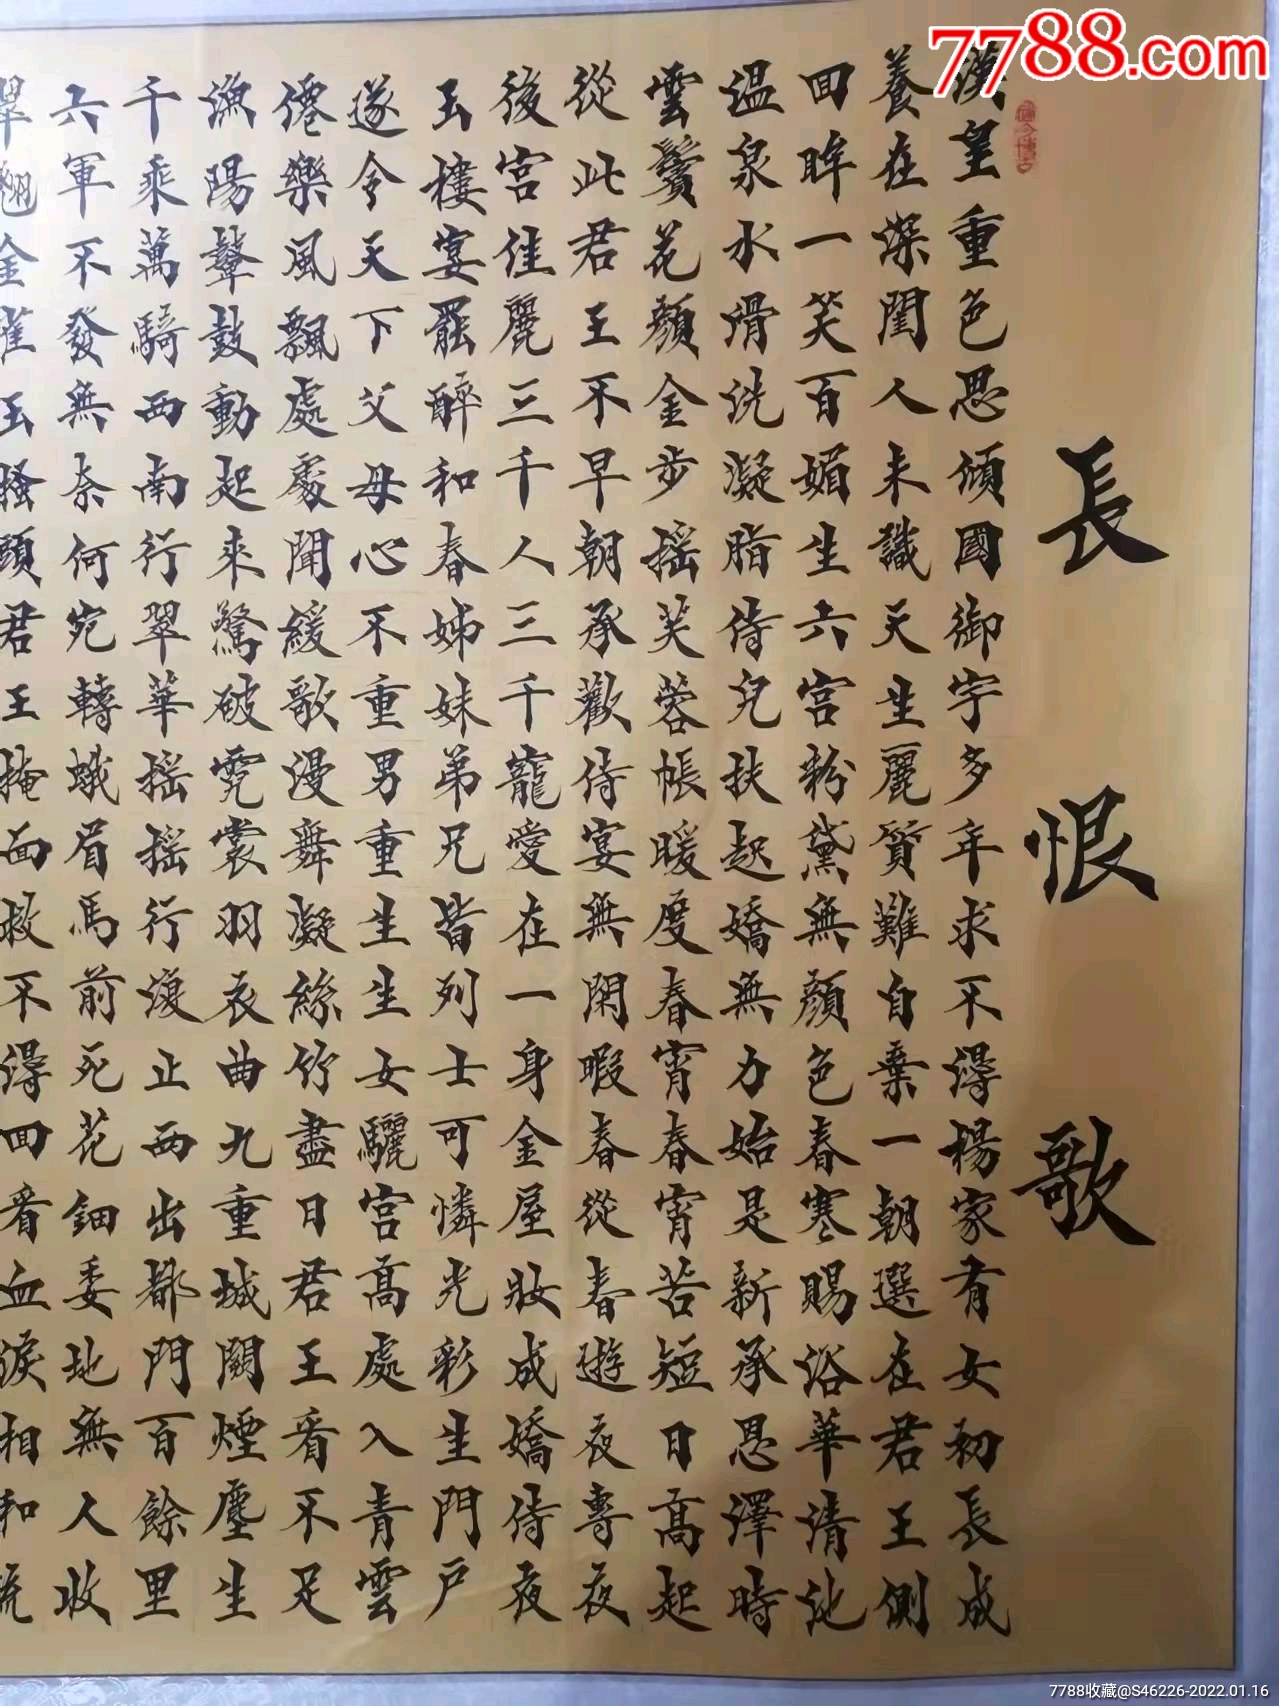 7788.com
長恨歌
漢皇重色思傾國御宇多年求不得楊家有女初長成
養在深閨人未識天生麗質難自棄一朝選在君王側
回眸一笑百媚生六宮粉黛無顏色春寒賜浴華清池
溫泉水滑洗凝脂侍兒扶起嬌無力始是新承恩澤時
雲鬢花顏金步搖芙蓉帳暖度春宵春宵苦短日高起
從此君王不早朝承歡侍宴無閑暇春從春遊夜專夜
後宮佳麗三千人三千寵愛在一身金屋妝成嬌侍夜
玉樓宴罷醉和春姊妹弟兄皆列士可憐光彩生門戶
遂令天下父母心不重男重生生女驪宮高處入青雲
僊樂風飄處處聞緩歌漫舞凝絲竹盡日君王看不足
漁陽鼙鼓動起來驚破霓裳羽衣曲九重城闕煙塵生
千乘萬騎西南行翠華搖搖行復止西出都門百餘里
六軍不發無奈何宛轉蛾眉馬前死花鈿委地無人收
翠翹金雀玉搔頭君王掩面救不得回看血淚相和流
7788收藏@S46226-2022.01.16